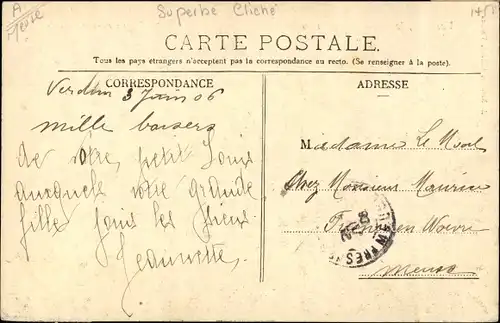 A
Meuse
Superbe Cliché
CARTE POSTALE.
Tous les pays étrangers n'acceptent pas la correspondance au recto. (Se renseigner à la poste).
CORRESPONDANCE
ADRESSE
Verdun 3 Juin 06
mille baisers
de votre petit Louis
auxquels votre grande
fille joint les siens.
Jeannette.
Madame Le
Chez Monsieur Maurice
Fresnes en Woevre
Meuse